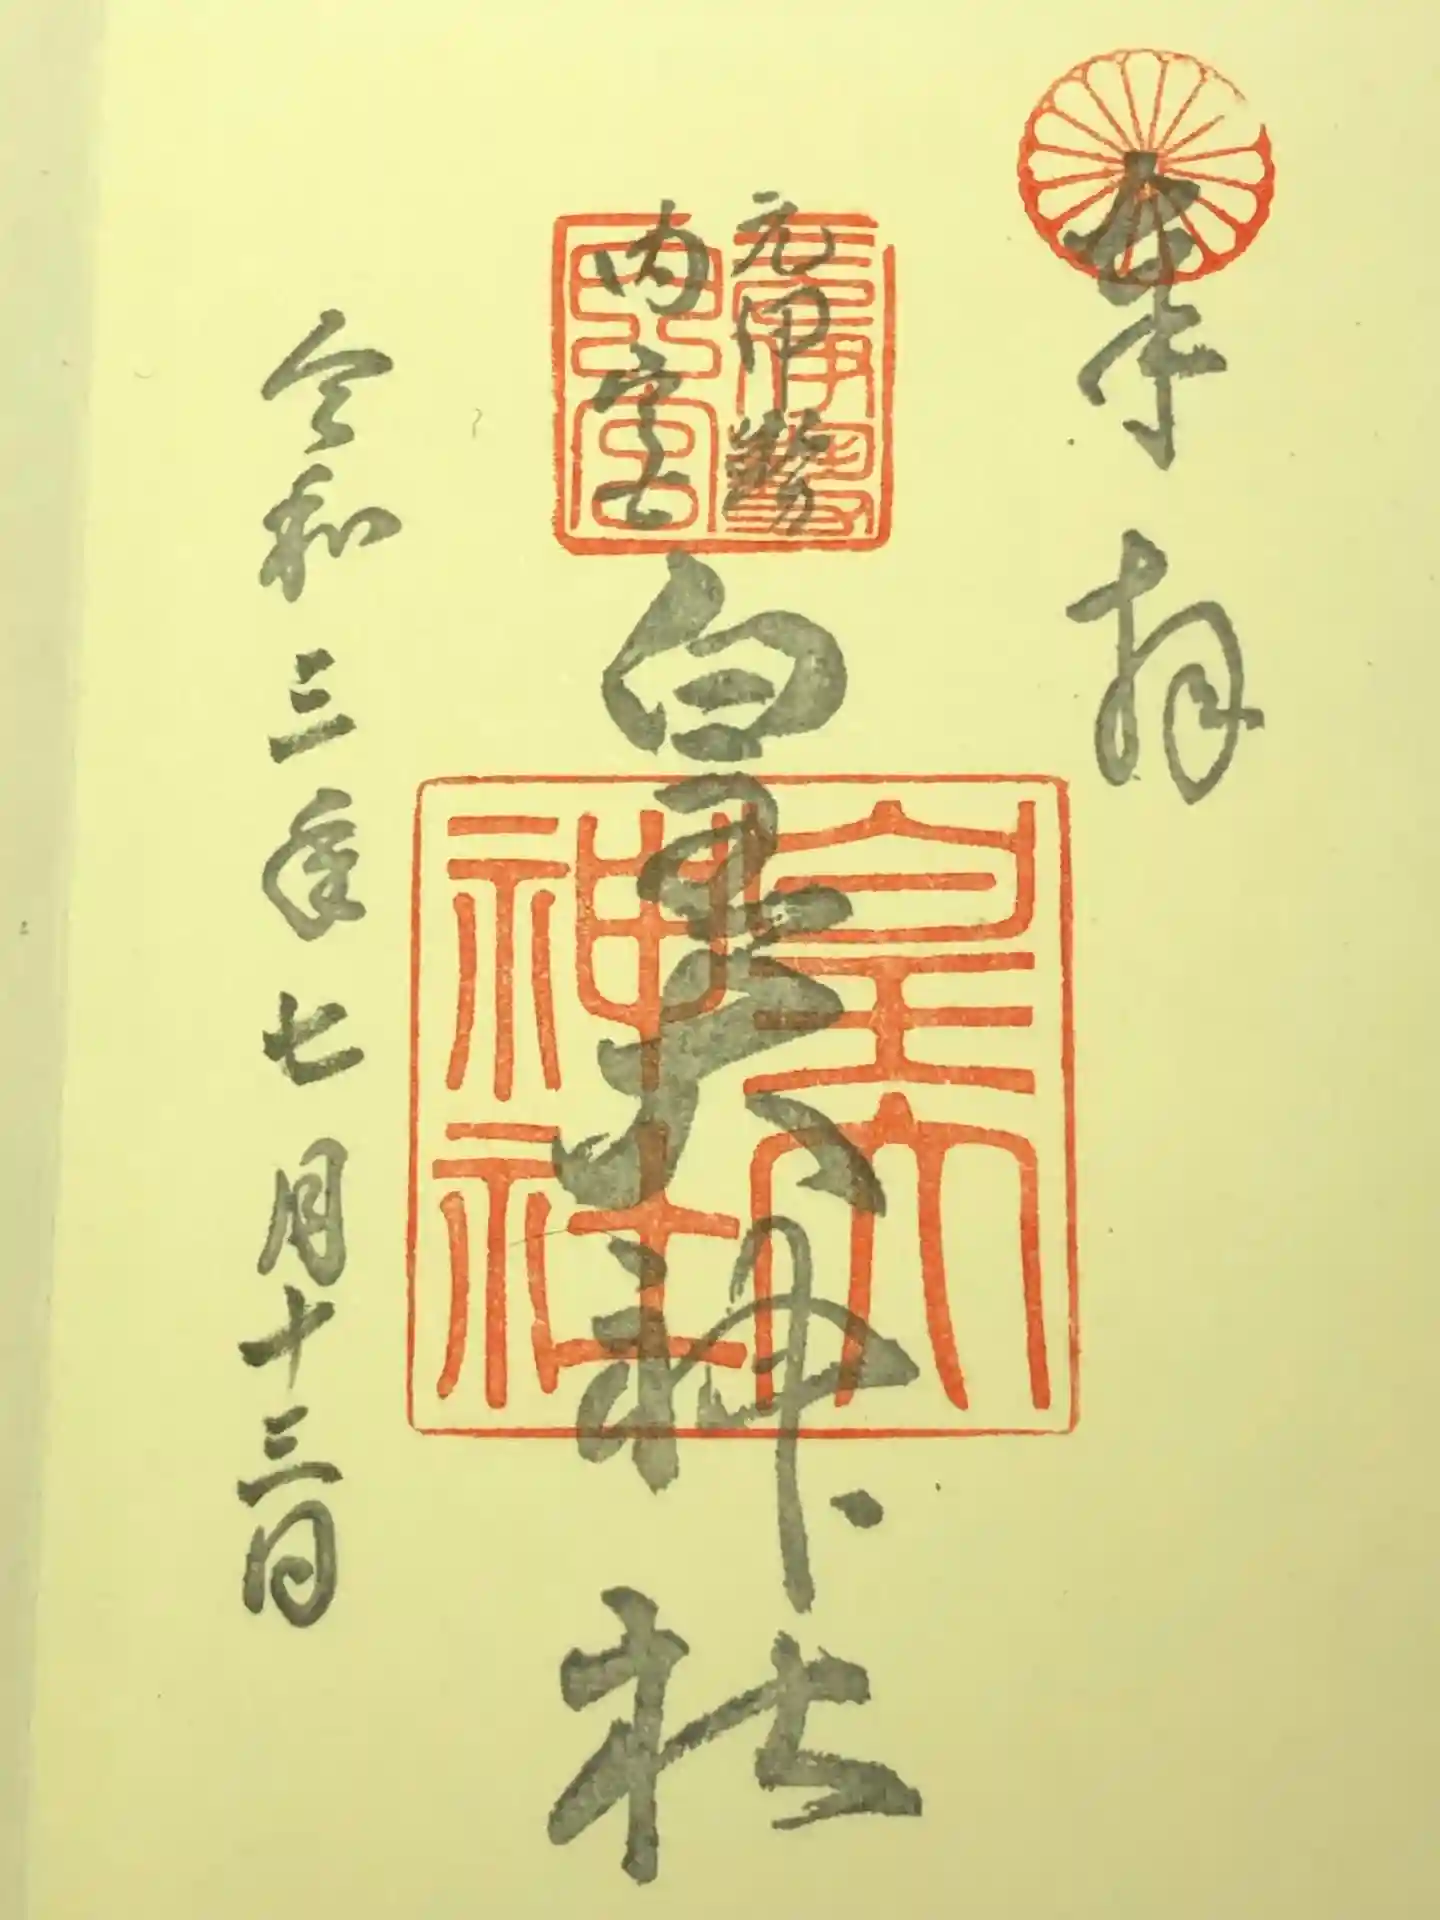 奉拝
元伊勢
内宮
皇大神社
元伊勢
内宮
皇大神社
令和三年七月十三日